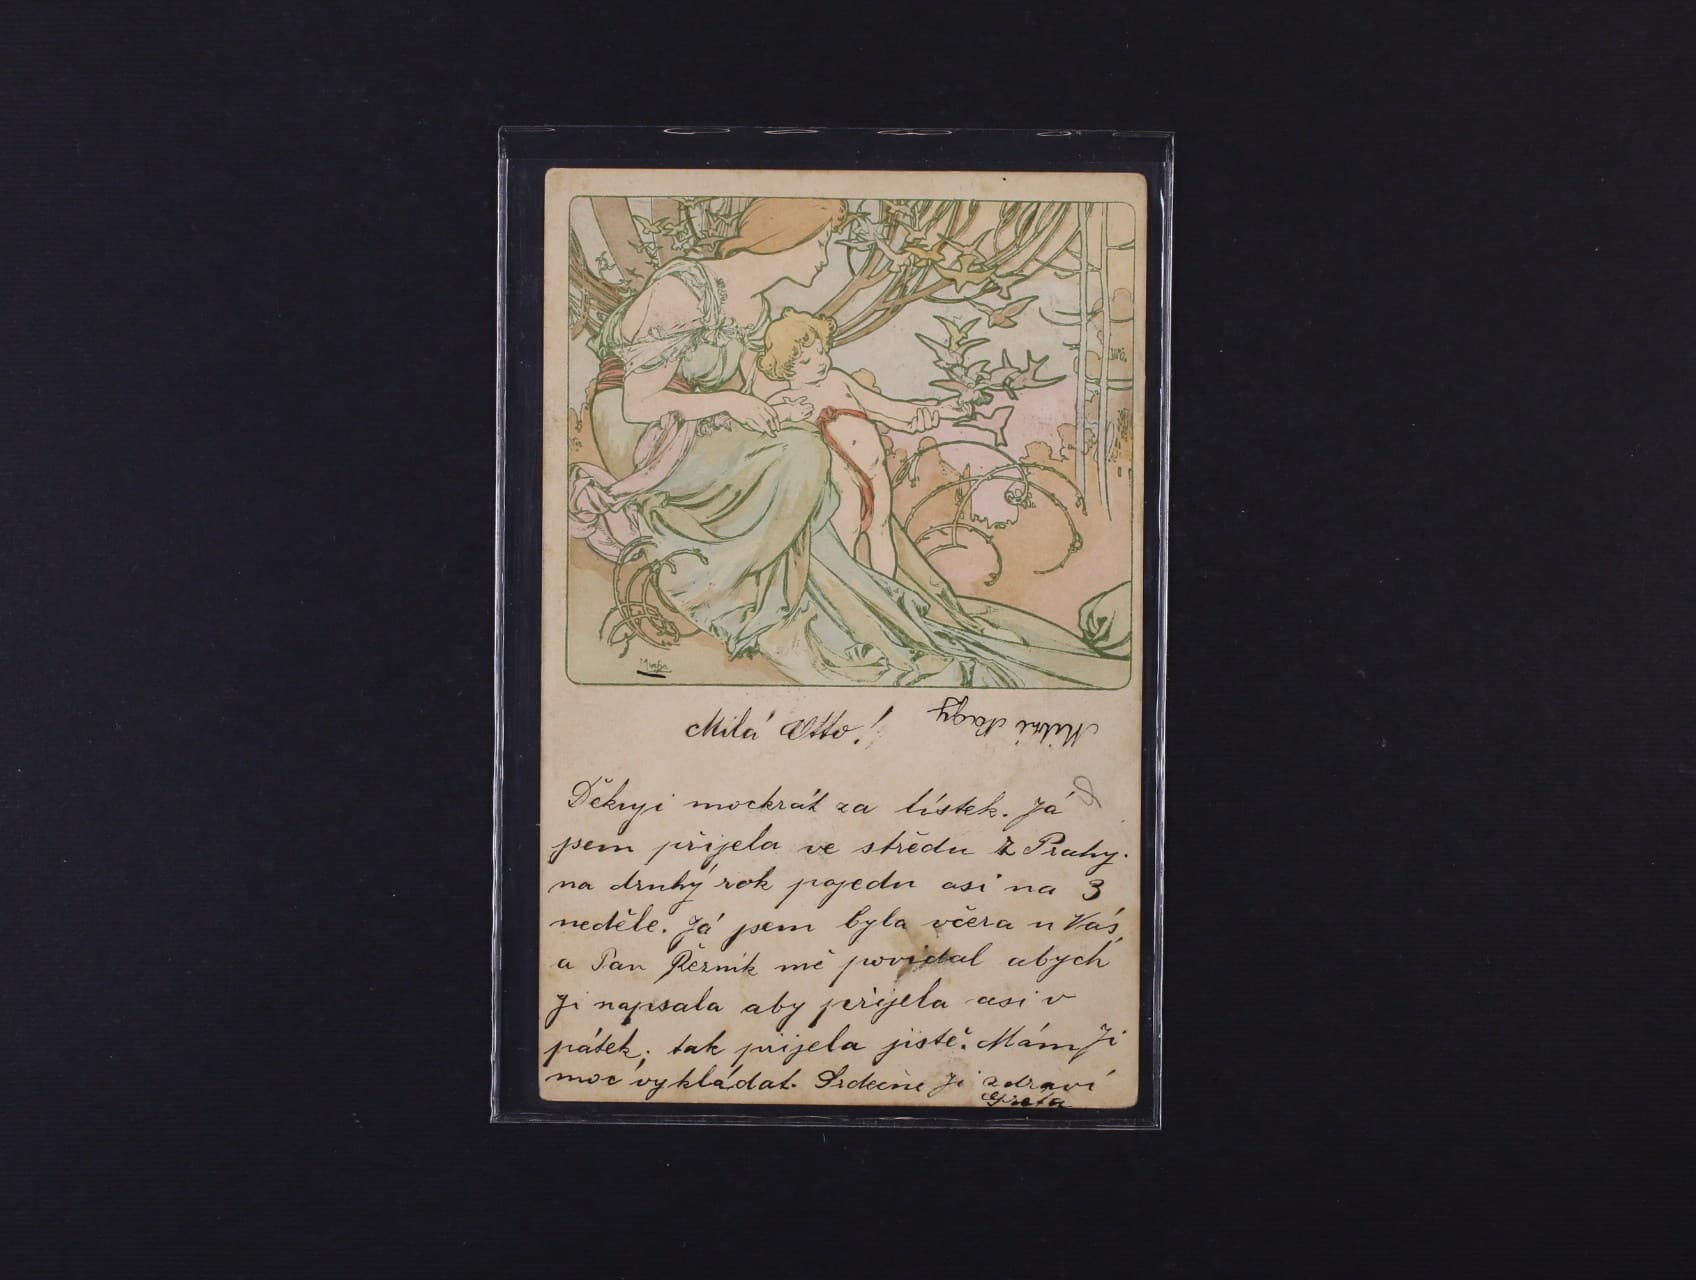 Mucha
Milá Otto!
Děkuji mockrát za lístek. Já
jsem přijela ve středu z Prahy.
na druhý rok pojedu asi na 3
neděle. Já jsem byla včera u Vás,
a Pan Řezník mě povídal abych
Ji napsala aby přijela asi v
pátek, tak přijela jistě. Mám Ji
moc vykládat. Srdečně Ji zdraví
Greta